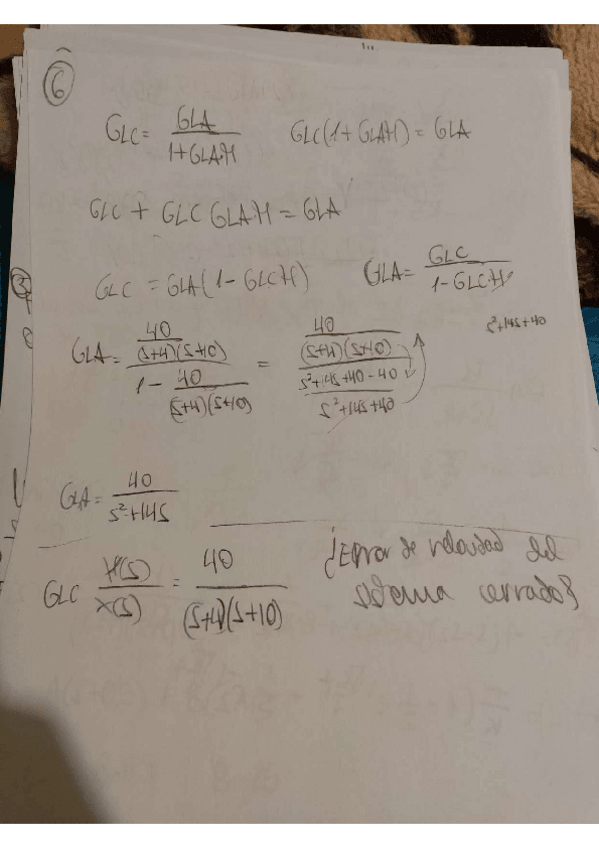 6
GLC = GLA / (1 + GLA·H)    GLC(1 + GLAH) = GLA
GLC + GLC GLA·H = GLA
GLC = GLA(1 - GLCH)    GLA = GLC / (1 - GLC·H)
GLA = (40 / ((s+4)(s+10))) / (1 - 40 / ((s+4)(s+10))) = (40 / ((s+4)(s+10))) / ((s²+14s+40-40) / (s²+14s+40))    s²+14s+40
GLA = 40 / (s²+14s)
GLC Y(s) / X(s) = 40 / ((s+4)(s+10))    ¿Error de velocidad del
sistema cerrado?